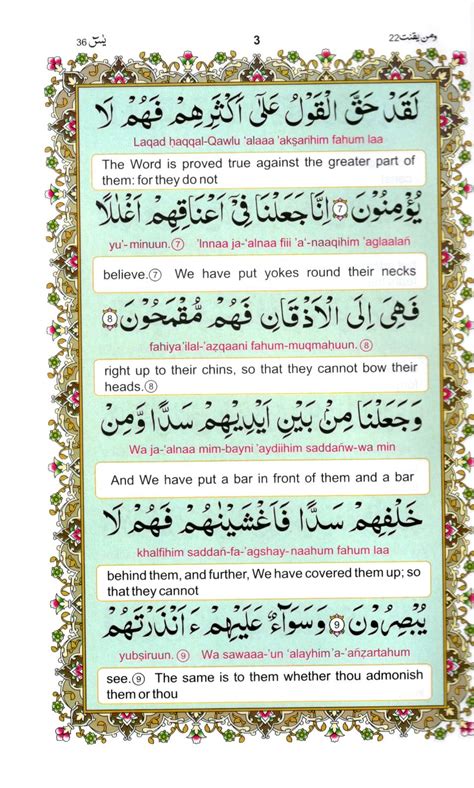 يٰسٓ 36 3 ومن يقنت 22
لَقَدْ حَقَّ الْقَوْلُ عَلٰٓى اَكْثَرِهِمْ فَهُمْ لَا
Laqad ḥaqqal-Qawlu 'alaaa 'akṣarihim fahum laa
The Word is proved true against the greater part of
them: for they do not
يُؤْمِنُوْنَ ⑦ اِنَّا جَعَلْنَا فِيْٓ اَعْنَاقِهِمْ اَغْلٰلًا
yu'- minuun.⑦ 'Innaa ja-'alnaa fiii 'a'-naaqihim 'aglaalañ
believe.⑦ We have put yokes round their necks
فَهِيَ اِلَى الْاَذْقَانِ فَهُمْ مُّقْمَحُوْنَ ⑧
fahiya 'ilal-'aẓqaani fahum-muqmaḥuun.⑧
right up to their chins, so that they cannot bow their
heads.⑧
وَجَعَلْنَا مِنْۢ بَيْنِ اَيْدِيْهِمْ سَدًّا وَّمِنْ
Wa ja-'alnaa mim-bayni 'aydiihim saddañw-wa min
And We have put a bar in front of them and a bar
خَلْفِهِمْ سَدًّا فَاَغْشَيْنٰهُمْ فَهُمْ لَا
khalfihim saddañ-fa-'agshay-naahum fahum laa
behind them, and further, We have covered them up; so
that they cannot
يُبْصِرُوْنَ ⑨ وَسَوَآءٌ عَلَيْهِمْ ءَاَنْذَرْتَهُمْ
yubṣiruun.⑨ Wa sawaaa-'un 'alayhim 'a-'añzartahum
see.⑨ The same is to them whether thou admonish
them or thou